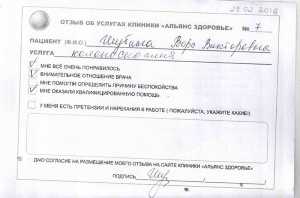 29.02.2016
ОТЗЫВ ОБ УСЛУГАХ КЛИНИКИ «АЛЬЯНС ЗДОРОВЬЕ» № 7
ПАЦИЕНТ (Ф.И.О.) Шубина Вера Викторовна
УСЛУГА колоноскопия
МНЕ ВСЁ ОЧЕНЬ ПОНРАВИЛОСЬ
ВНИМАТЕЛЬНОЕ ОТНОШЕНИЕ ВРАЧА
МНЕ ПОМОГЛИ ОПРЕДЕЛИТЬ ПРИЧИНУ БЕСПОКОЙСТВА
МНЕ ОКАЗАЛИ КВАЛИФИЦИРОВАННУЮ ПОМОЩЬ
У МЕНЯ ЕСТЬ ПРЕТЕНЗИИ И НАРЕКАНИЯ К РАБОТЕ ( ПОЖАЛУЙСТА, УКАЖИТЕ КАКИЕ)
ДАЮ СОГЛАСИЕ НА РАЗМЕЩЕНИЕ МОЕГО ОТЗЫВА НА САЙТЕ КЛИНИКИ «АЛЬЯНС ЗДОРОВЬЕ»
ПОДПИСЬ